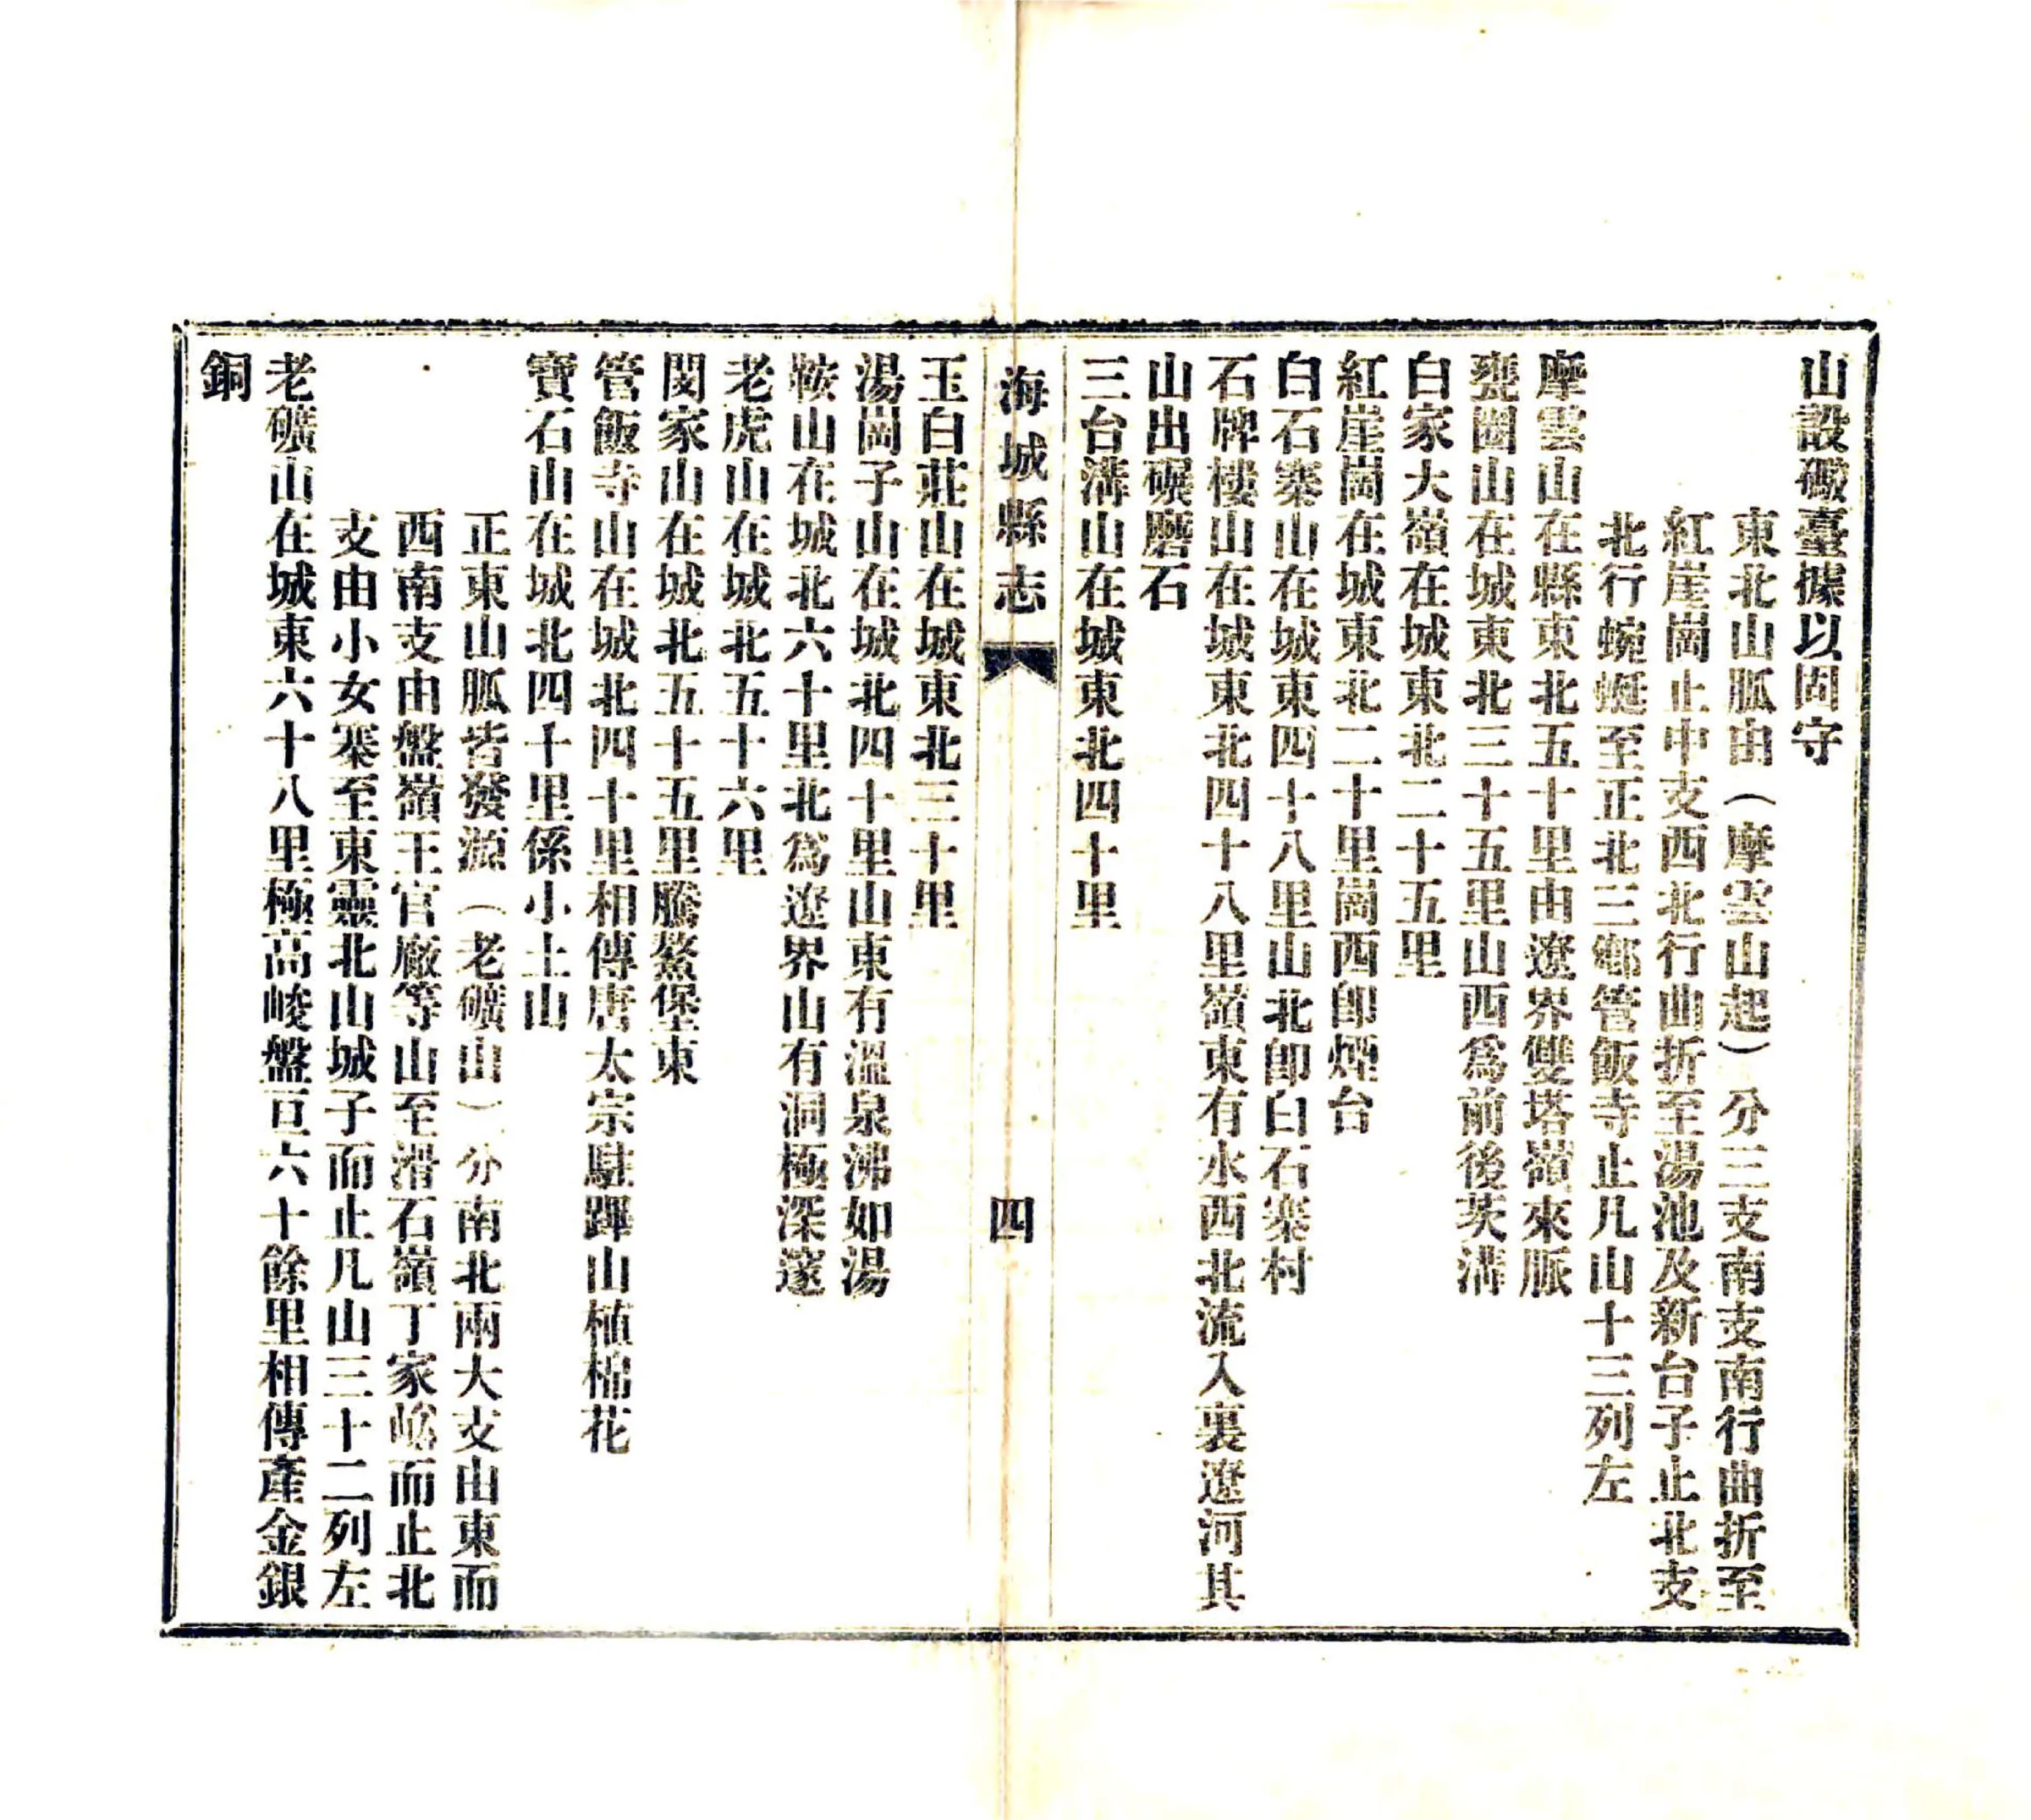 山設礮臺據以固守
東北山脈由（摩雲山起）分三支南支南行曲折至
紅崖崗止中支西北行曲折至湯池及新台子止北支
北行蜿蜒至正北三鄉管飯寺止凡山十三列左
摩雲山在縣東北五十里由遼界雙塔嶺來脈
甕圈山在城東北三十五里山西爲前後英溝
白家大嶺在城東北二十五里
紅崖崗在城東北二十里崗西卽煙台
白石寨山在城東四十八里山北卽白石寨村
石牌樓山在城東北四十八里嶺東有水西北流入裏遼河其
山出碾磨石
三台溝山在城東北四十里
海城縣志
四
玉白莊山在城東北三十里
湯崗子山在城北四十里山東有溫泉沸如湯
鞍山在城北六十里北爲遼界山有洞極深邃
老虎山在城北五十六里
閔家山在城北五十五里騰鰲堡東
管飯寺山在城北四十里相傳唐太宗駐蹕山植棉花
寶石山在城北四十里係小土山
正東山脈皆發源（老礦山）分南北兩大支山東而
西南支由盤嶺王官廠等山至滑石嶺丁家峪而止北
支由小女寨至東靈北山城子而止凡山三十二列左
老礦山在城東六十八里極高峻盤亘六十餘里相傳產金銀
銅